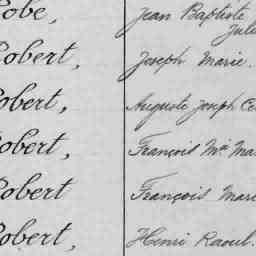 Robe, Jean Baptiste
Jules
Robert, Joseph Marie.
Robert, Auguste Joseph
Robert, François Mie
Robert François Marie
Robert, Henri Raoul.